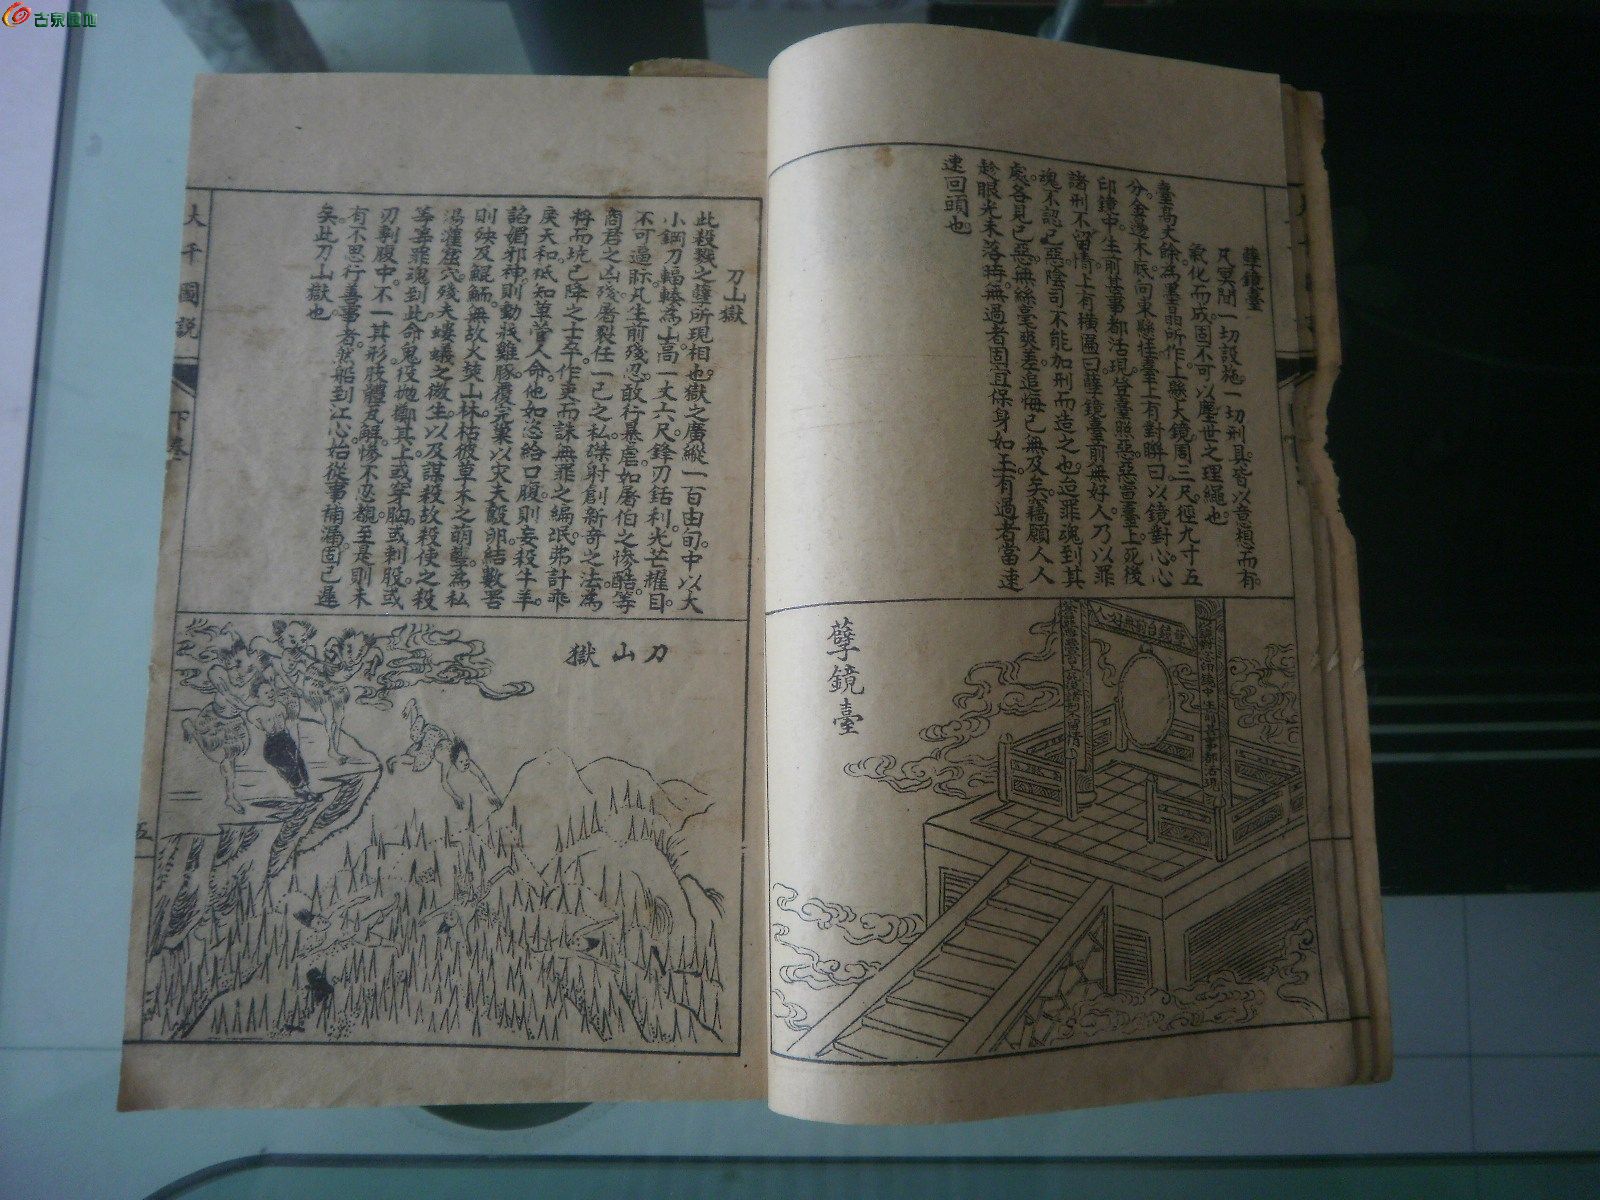 孽鏡臺
凡冥間一切設施一切刑具皆以意想而有
氣化而成固不可以塵世之理繩也
臺高丈餘為墨晶所作上懸大鏡周三尺徑九寸五
分金邊木底向東懸挂臺上有對聯曰以鏡對心心
印鏡中生前其事都活現登臺照惡惡置臺上死後
諸刑不留情上有橫匾曰孽鏡臺前無好人乃以罪
魂不認己惡陰司不能加刑而造之也迨罪魂到其
處各見己惡無絲毫爽差追悔已無及矣竊願人人
趁眼光未落時無過者固且保身如玉有過者當速
速回頭也
孽鏡臺
孽鏡臺前無好人
刀山獄
此殺戮之孽所現相也獄之廣縱一百由旬中以大
小鋼刀輻輳為山高一丈六尺鋒刃銛利光芒耀目
不可逼眎凡生前殘忍敢行暴虐如屠伯之慘酷等
商君之凶殘屠裂任一己之私磔射創新奇之法為
將而坑已降之士卒作吏而誅無罪之編氓弗計乖
戾天和祗知草菅人命他如恣給口腹則妄殺牛羊
諂媚邪神則動戕雞豚覆完巢以灾夫鷇卵結數罟
則殃及鯤鮞無故火焚山林枯彼草木之萌蘖為私
湯灌窟穴殘夫螻蟻之微生以及謀殺故殺使之殺
等等罪魂到此命鬼役拋擲其上或穿胸或刺股或
刃剚腹中不一其形肢體瓦解慘不忍覩至是則未
有不思行善事者然船到江心始從事補漏固已遲
矣此刀山獄也
刀山獄
大千圖說
下卷
五
古泉園地